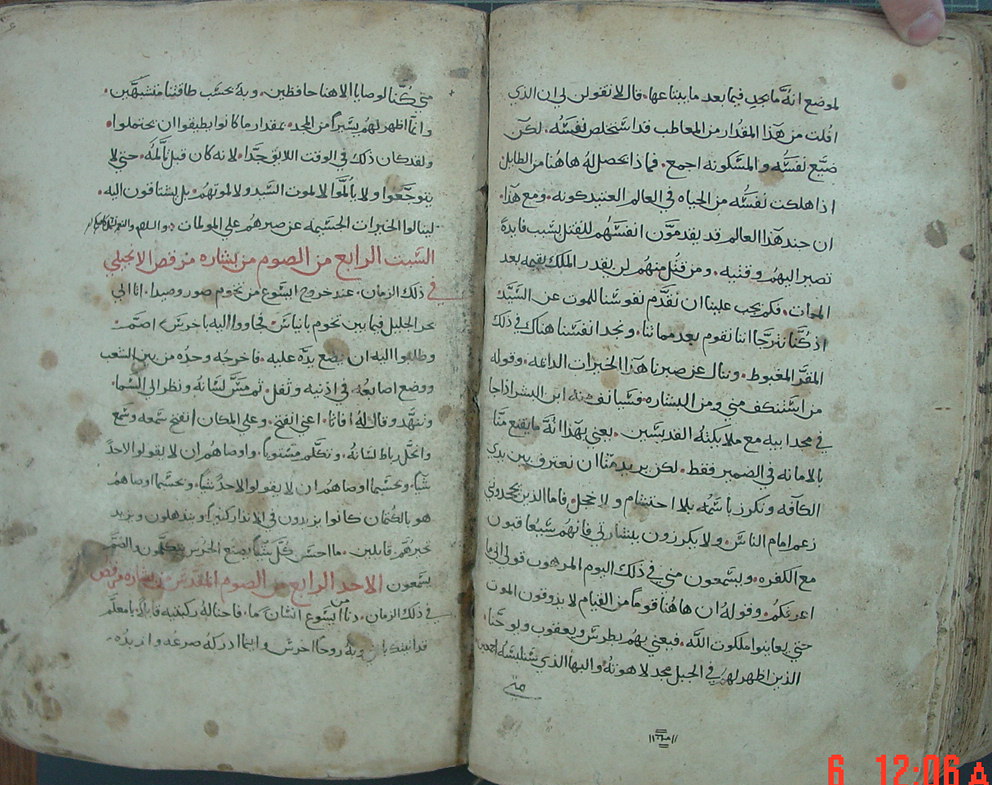 لموضع انه ما يجد فيما بعد ما يبتاعها. قال لا تقولن لي ان الذي
افلت من هذا المقدار من المعاطب قد استخلص نفسه. لكن
ضيّع نفسه والمسكونه اجمع. فماذا يحصل له هاهنا من الطايل
اذا هلكت نفسه من الحياه في العالم العتيد كونه. ومع هذا.
ان جند هذا العالم قد يقدمون انفسهم للقتل بسبب فايدة
تصير اليهم وقنيه. ومن قتل منهم لن يقدر الملك يقيمه بعد
الممات. فكم يجب علينا ان نقدّم نفوسنا للموت عن السيّد
اذ كنّا نترجّا اننا نقوم بعد مماتنا. ونجد انفسنا هناك في ذلك
المقرّ المغبوط. وننال عن صبرنا هذا الخيرات الدائمه. وقوله
من استنكف مني ومن البشاره. فسيانف منه ابن البشر اذا جا
في مجد ابيه مع ملايكته القديسين. يعني بهذا انه ما يقنع منّا
بالامانه في الضمير فقط. لكن يريد منّا ان نعترف بين يدي
الكافه ونكرز باسمه بلا احتشام ولا خجل. فاما الذين يجحدوني
زعم امام الناس. ولا يكرزون ببشارتي فانهم سيعاقبون
مع الكفره. ويسمعون مني في ذلك اليوم المرهوب قولي اني ما
اعرفكم. وقوله ان هاهنا قوماً من القيام لا يذوقون الموت
حتي يعاينوا ملكوت الله. فيعني بهم بطرس ويعقوب ويوحنّا.
الذين اظهر لهم في الجبل مجد لاهوته والبها الذي
متي
متي كُنّا لوصايا الاهنا حافظين. وبه بحسب طاقتنا متشبهين.
وانما اظهر لهم يسيراً من المجد. بمقدار ما كانوا يطيقوا ان يحتملوا.
ولقد كان ذلك في الوقت اللايق جدّا. لانه كان قبل تألمه. حتي لا
يتوجّعوا ولا يألموا لا لموت السيد ولا لموتهم. بل يشتاقون اليه.
لينالوا الخيرات الجسيمه عن صبرهم علي المولمات
السبت الرابع من الصوم من بشاره مرقص الانجيلي
في ذلك الزمان. عند خروج ايسوع من تخوم صور وصيدا. اتا الي
بحر الجليل فيما بين تخوم بانياس. فجاووا اليه باخرس اصمّ.
وطلبوا اليه ان يضع يده عليه. فاخرجه وحده من بين الشعب
ووضع اصابعه في اذنيه وتفل. ثم مسّ لسانه ونظر الي السما.
وتنهّد وقال له افاتا. اعني انفتح. وعلي المكان انفتح سمعه وسمع
وانحلّ رباط لسانه. وتكلّم مستوياً. واوصاهم ان لا يقولوا لاحد
شياً. وبحسبما اوصاهم ان لا يقولوا لاحد شياً. وبحسبما اوصاهم
هو بالكتمان كانوا يزيدون في الانذار كثيراً وينذهلون ويزيد
تحيرهم قايلين. ما احسن كل شياً يصنع الخرس يتكلمون والصم
يسمعون الاحد الرابع من الصوم المقدس من بشاره مرقص
في ذلك الزمان. دنا من ايسوع انسان ما. فاحنا له ركبتيه قايلا. يا معلم
قد اتيتك بابني وبه روحاً اخرس واينما ادركه صرعه وازبده.